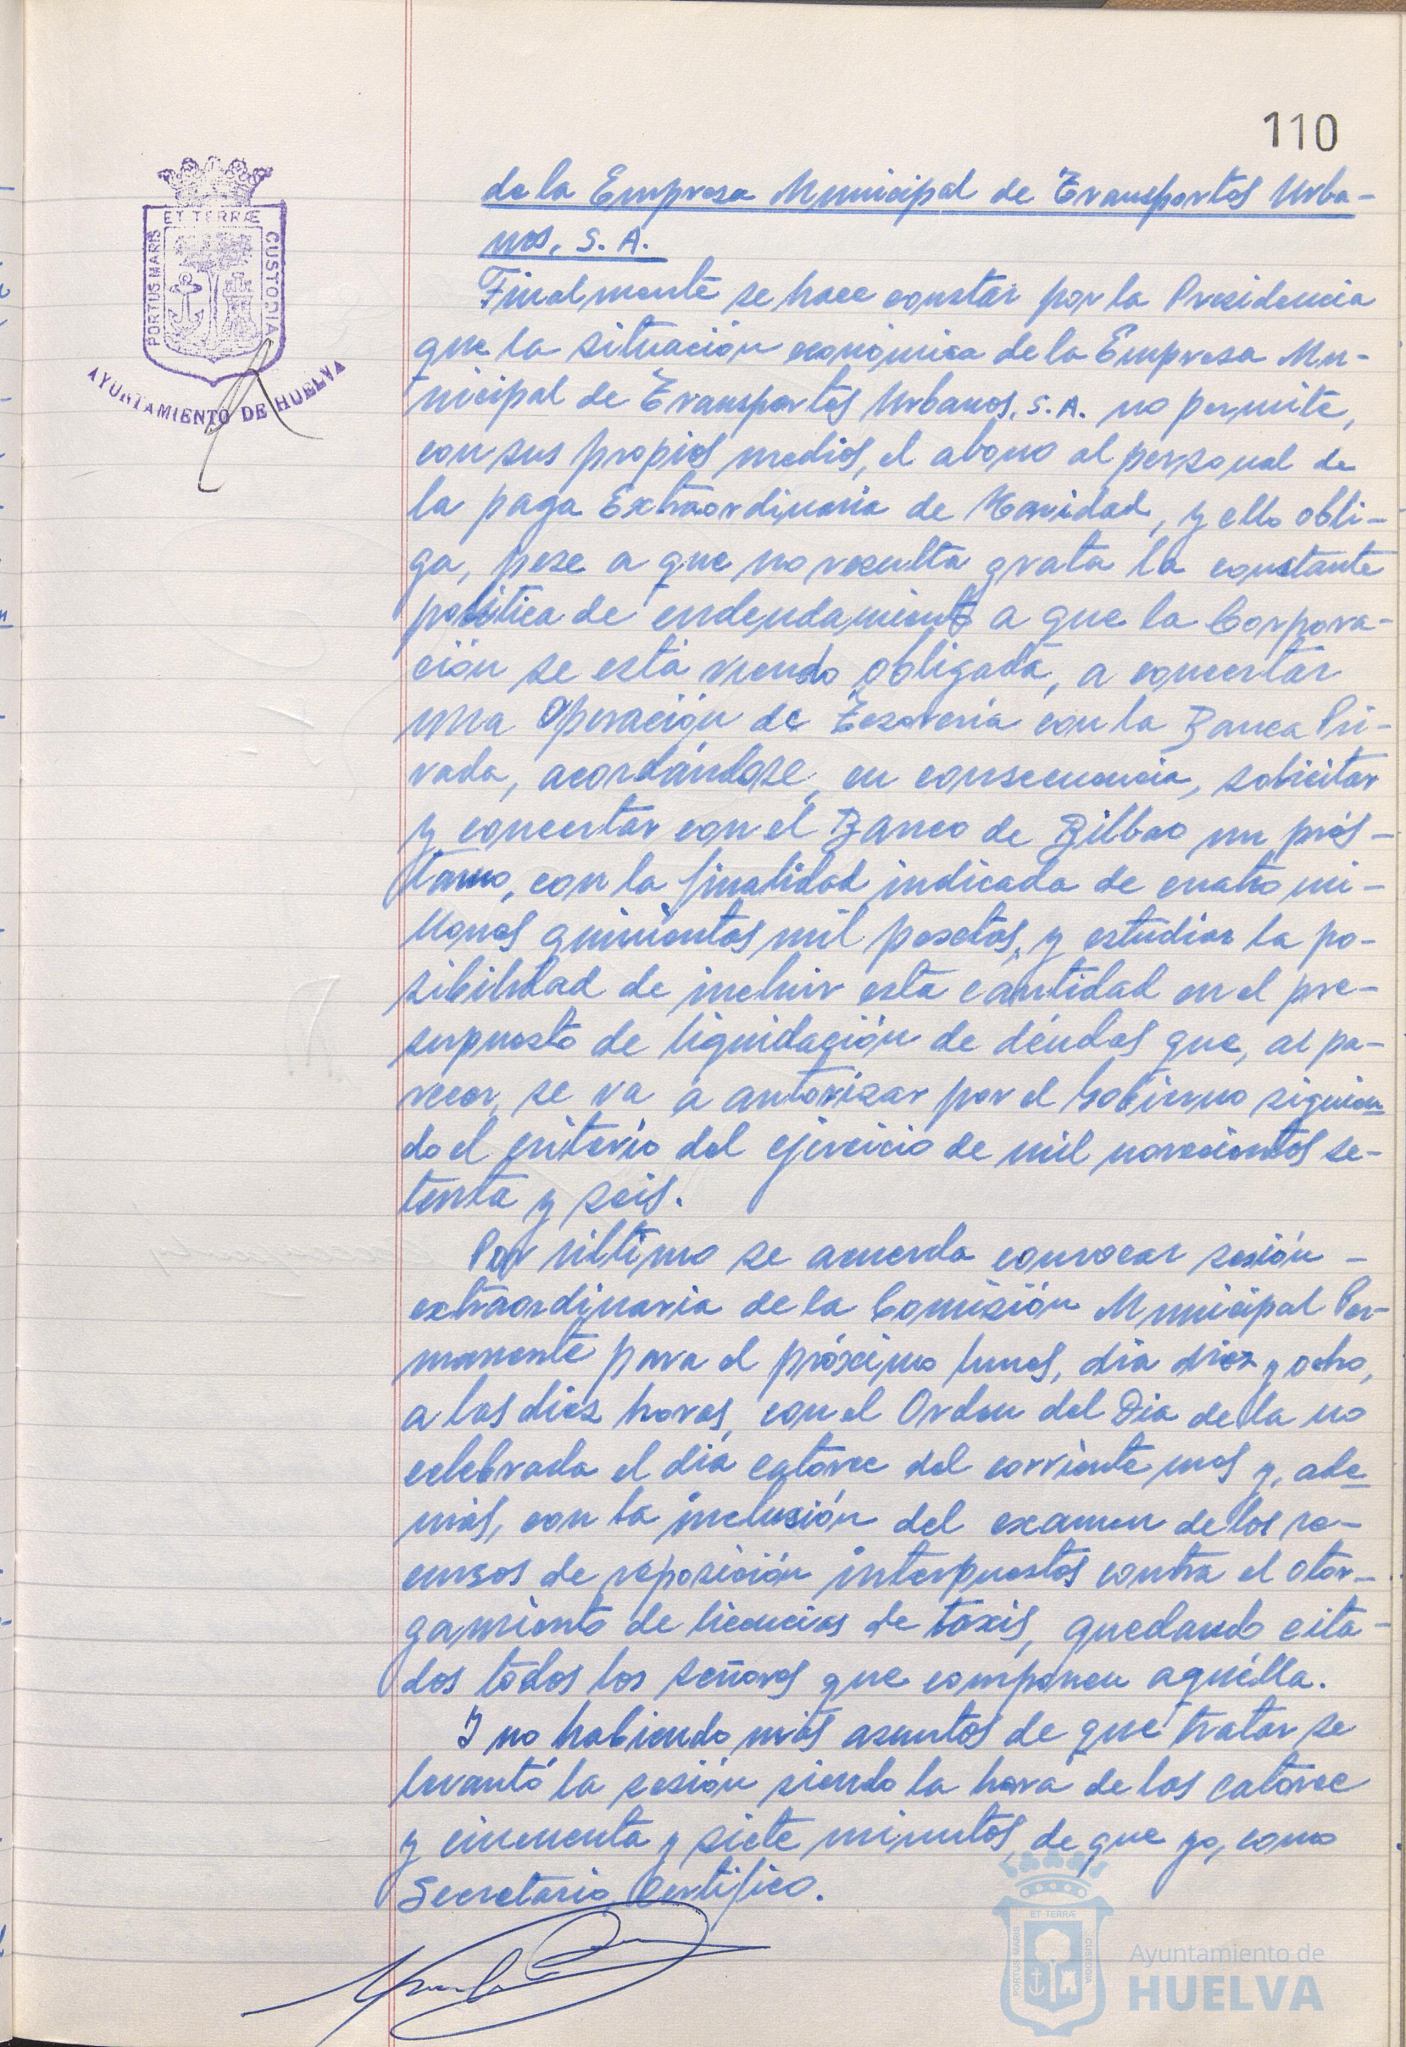 110
ET TERRÆ
PORTUS MARIS
CUSTODIA
AYUNTAMIENTO DE HUELVA
de la Empresa Municipal de Transportes Urba-
nos, S. A.
Finalmente se hace constar por la Presidencia
que la situación económica de la Empresa Mu-
nicipal de Transportes Urbanos, S.A. no permite,
con sus propios medios, el abono al personal de
la paga Extraordinaria de Navidad, y ello obli-
ga, pese a que no resulta grata la constante
política de endeudamiento a que la Corpora-
ción se está viendo obligada, a concertar
una Operación de Tesorería con la Banca Pri-
vada, acordándose, en consecuencia, solicitar
y concertar con el Banco de Bilbao un prés-
tamo, con la finalidad indicada de cuatro mi-
llones quinientas mil pesetas, y estudiar la po-
sibilidad de incluir esta cantidad en el pre-
supuesto de liquidación de déudas que, al pa-
recer, se va a autorizar por el Gobierno siguien
do el criterio del ejercicio de mil novecientos se-
tenta y seis.
Por último se acuerda convocar sesión -
extraordinaria de la Comisión Municipal Per-
manente para el próximo lunes, día diez y ocho,
a las diez horas, con el Orden del Dia de la no
celebrada el día catorce del corriente mes y, ade
más, con la inclusión del examen de los re-
cursos de reposición interpuestos contra el otor-
gamiento de licencias de taxis, quedando cita-
dos todos los señores que componen aquélla.
Y no habiendo más asuntos de que tratar se
levantó la sesión siendo la hora de las catorce
y cincuenta y siete minutos, de que yo, como
Secretario, Certifico.
ET TERRÆ
PORTUS MARIS
CUSTODIA
Ayuntamiento de
HUELVA